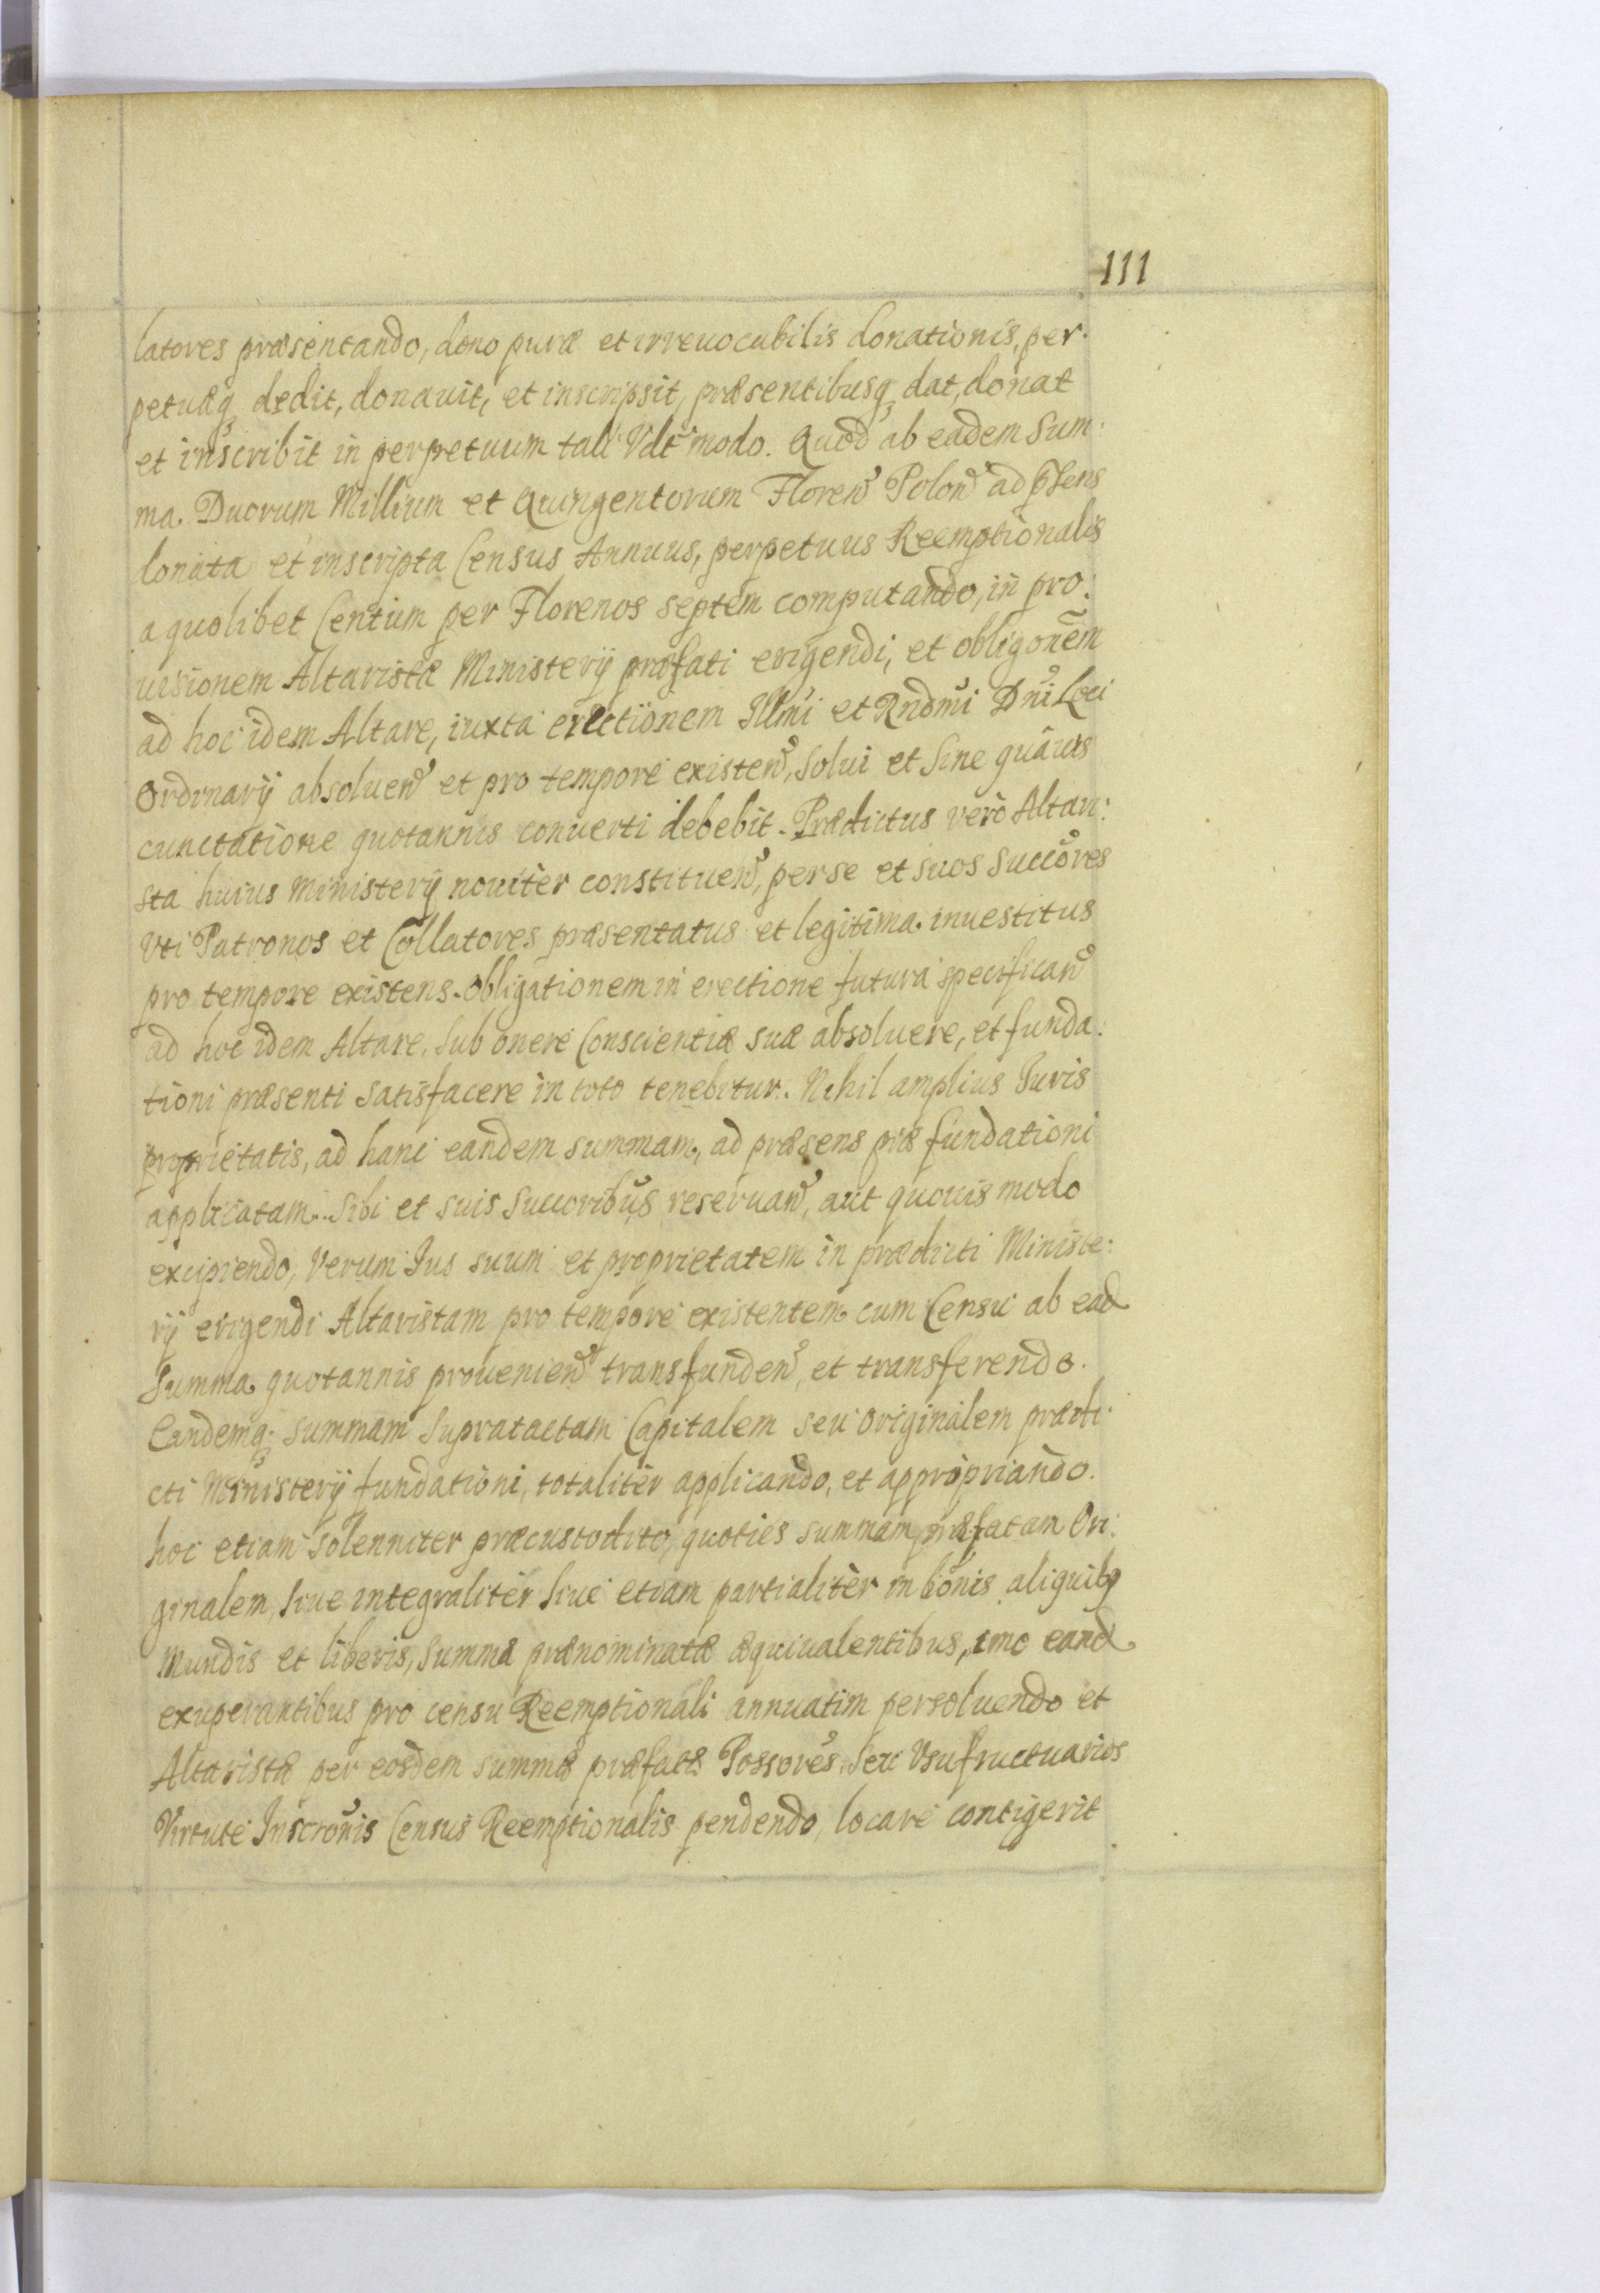 111
latores præsentando, dono puræ et irreuocabilis donationis, per:
petuæq3 dedit, donauit, et inscripsit, præsentibusq3 dat, donat
et inscribit in perpetuum tali Vdt modo. Quod ab eadem Sum:
ma. Duorum Millium et Quingentorum Floren Polon ad p̄sens
donata et inscripta Census Annuus, perpetuus Reemptionalis
a quolibet Centum per Florenos septem computando, in pro:
uisionem Altaristæ Ministerÿ præfati erigendi, et obligoñem
ad hoc idem Altare, iuxta erectionem Illmi et Rndmi Dni Loci
Ordinarÿ absoluen et pro tempore existen, solui et sine quauis
cunctatione quotannis conuerti debebit. Prædictus verò Altari:
sta huius Ministerÿ nouitèr constituen, per se et suos Succores
Vti Patronos et Collatores præsentatus et legitima. inuestitus
pro tempore existens. Obligationem in erectione futura specifican
ad hoc idem Altare. Sub onere Conscientiæ suæ absoluere, et funda:
tioni præsenti satisfacere in toto tenebitur. Nihil amplius Juris
proprietatis, ad hanc eandem summam, ad præsens præ fundationi
applicatam. Sibi et suis Succoribus reseruan, aut quouis modo
excipiendo, Verum Jus suum et proprietatem in prædicti Ministe:
rÿ erigendi Altaristam pro tempore existentem cum Censu ab ead
Summa quotannis prouenien transfunden, et transferendo.
Eandemq3 summam supratactam Capitalem seu Originalem prædi:
cti Ministerÿ fundationi, totalitèr applicando, et appropriando.
hoc etiam solenniter præcustodito, quoties summam præfatam Ori:
ginalem, siue integralitèr siue etiam partialitèr in bonis aliquibq
Mundis et liberis, Summæ prænominatæ æquiualentibus, imo eand
exuperantibus pro censu Reemptionali annuatim persoluendo et
Altaristæ per eosdem summæ præfatæ Possores, seu Vsufructuarios
Virtute Inscronis Census Reemptionalis pendendo, locare contigerit